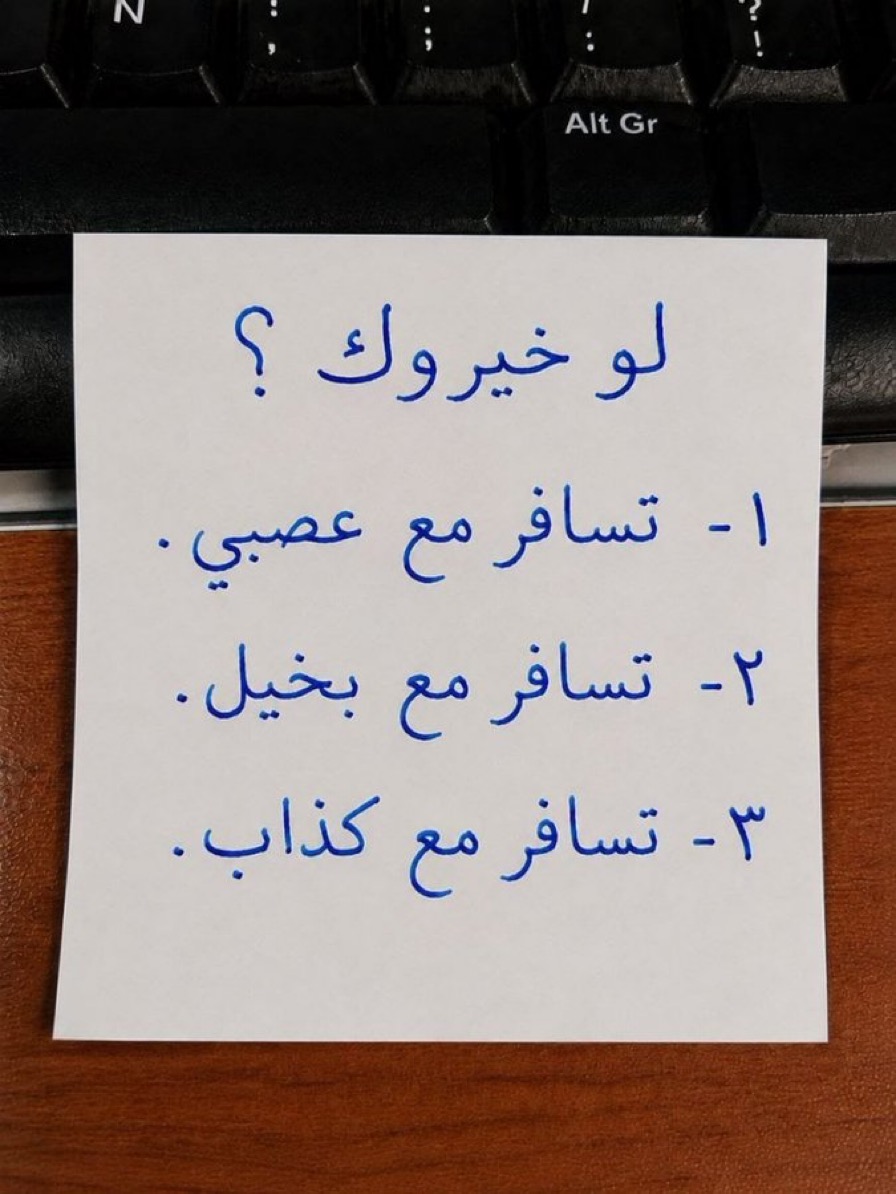 N ; , : ; / : ? !
Alt Gr
لو خيروك ؟
١- تسافر مع عصبي .
٢- تسافر مع بخيل .
٣- تسافر مع كذاب .